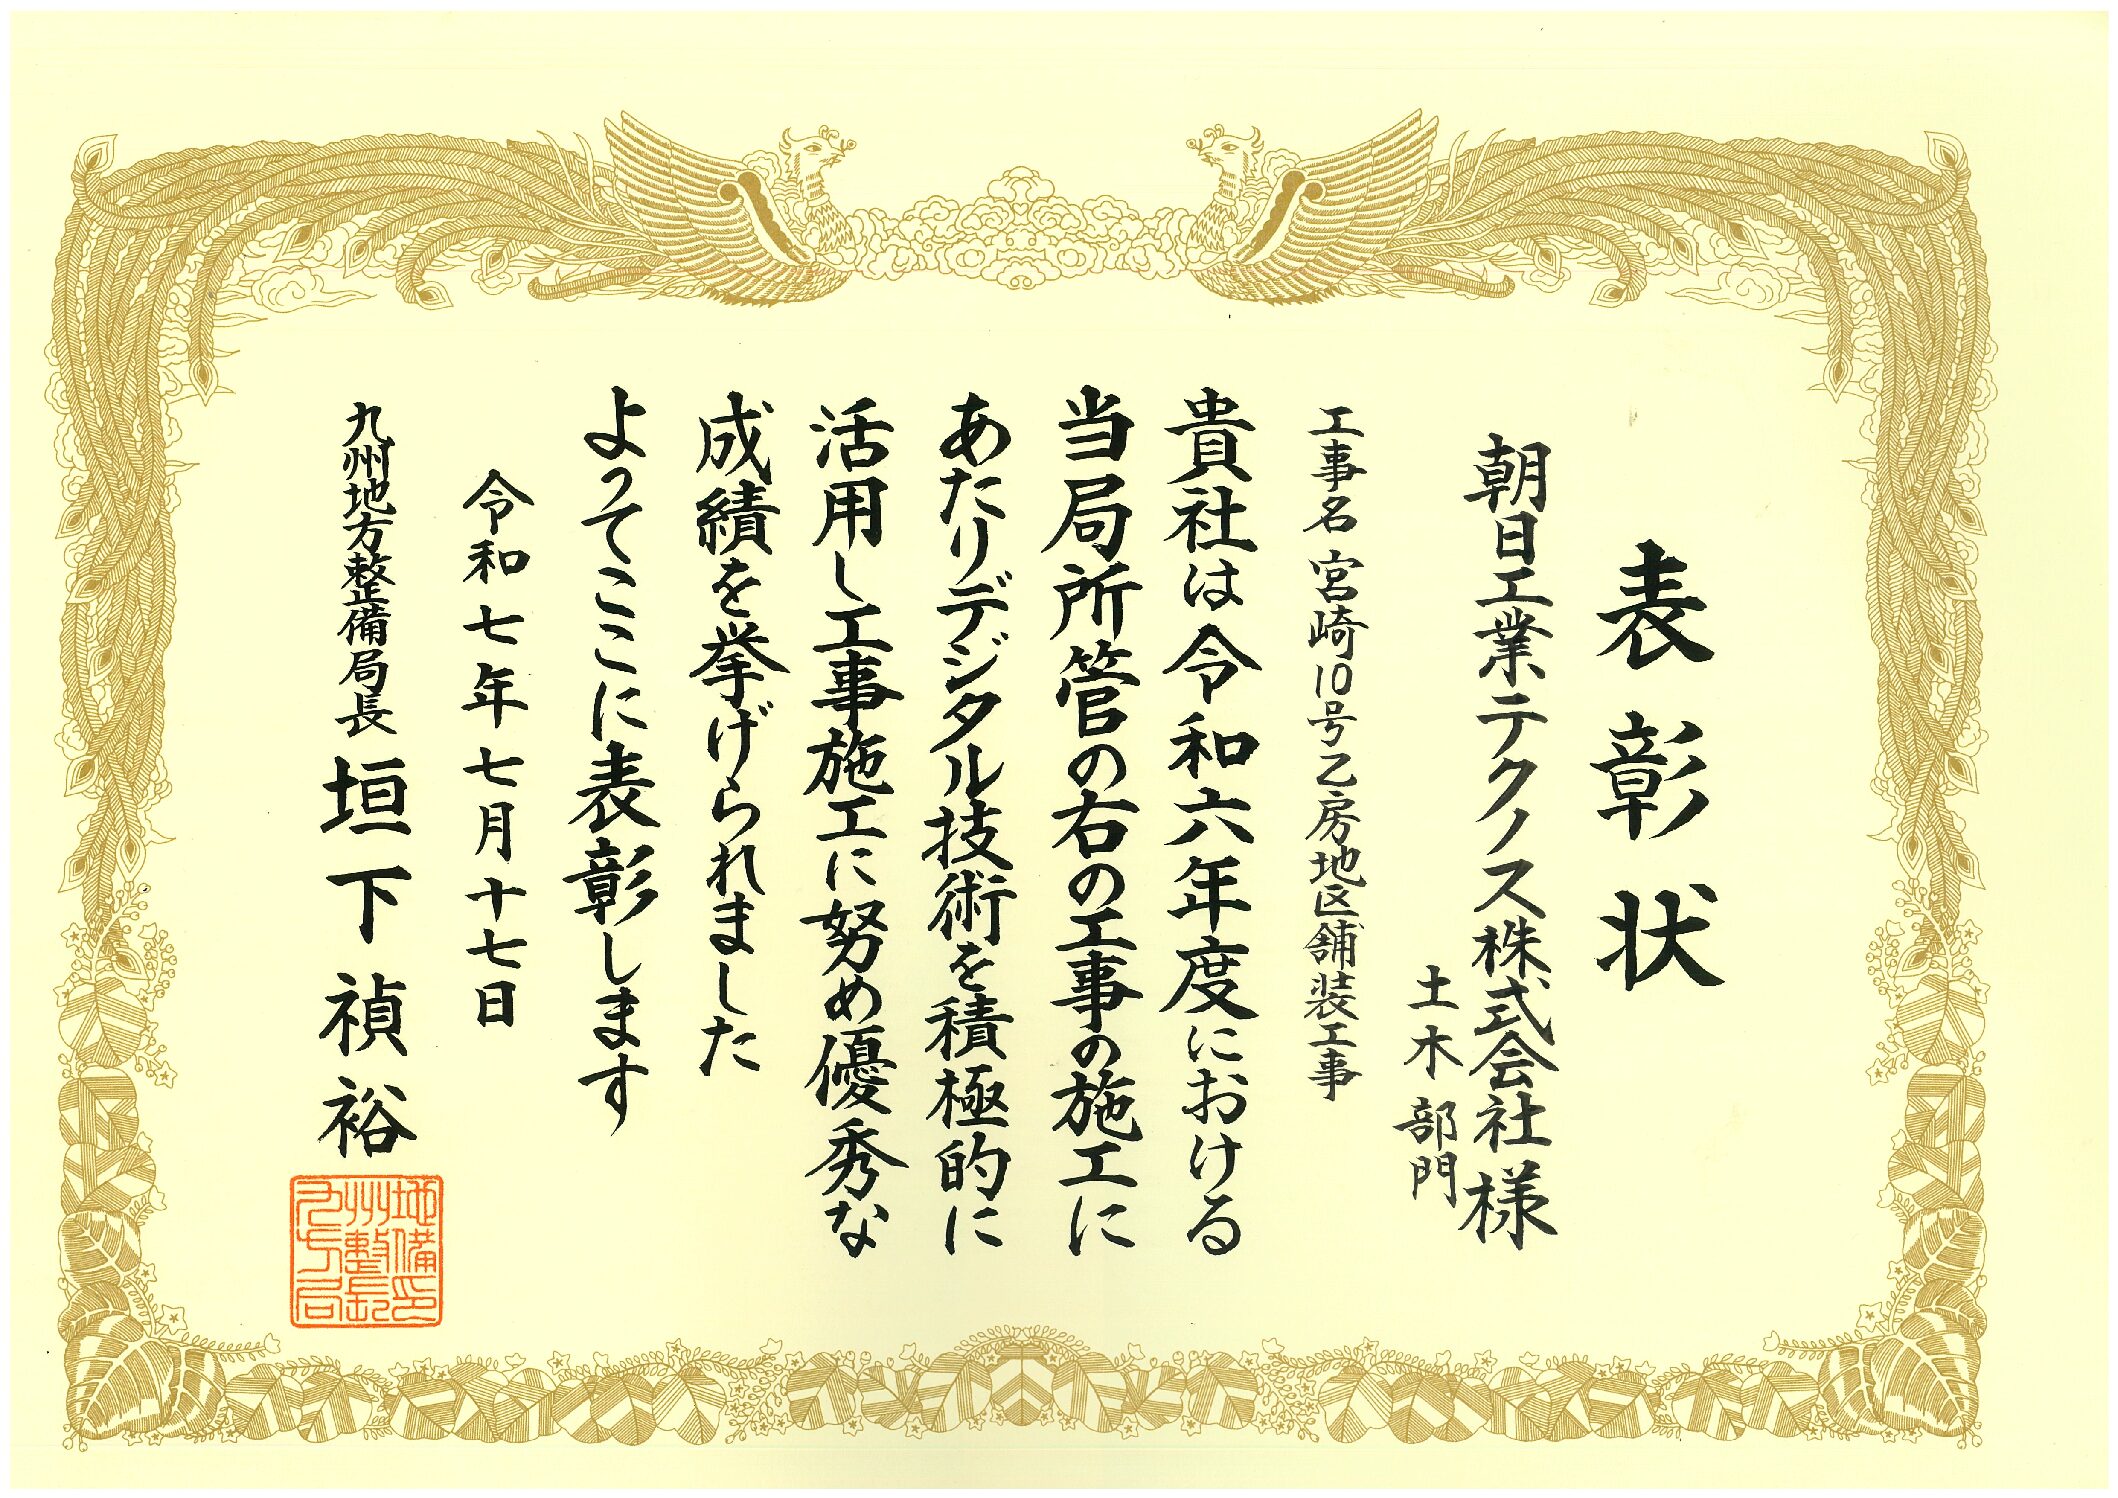 表彰状
朝日工業テクノス株式会社様
土木部門
工事名 宮崎10号乙房地区舗装工事
貴社は令和六年度における
当局所管の右の工事の施工に
あたりデジタル技術を積極的に
活用し工事施工に努め優秀な
成績を挙げられました
よってここに表彰します
令和七年七月十七日
九州地方整備局長 垣下禎裕
九州地方整備局長印